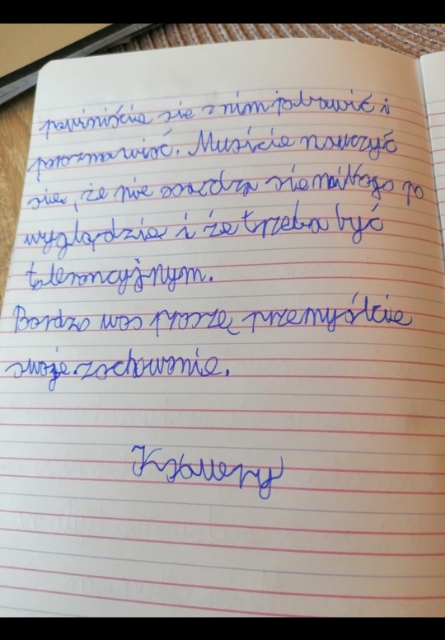 powinniście się z nim pobawić i
porozmawiać. Musicie nauczyć
się, że nie osądza się nikogo po
wyglądzie i że trzeba być
tolerancyjnym.
Bardzo was proszę przemyślcie
swoje zachowanie.
Ksawery